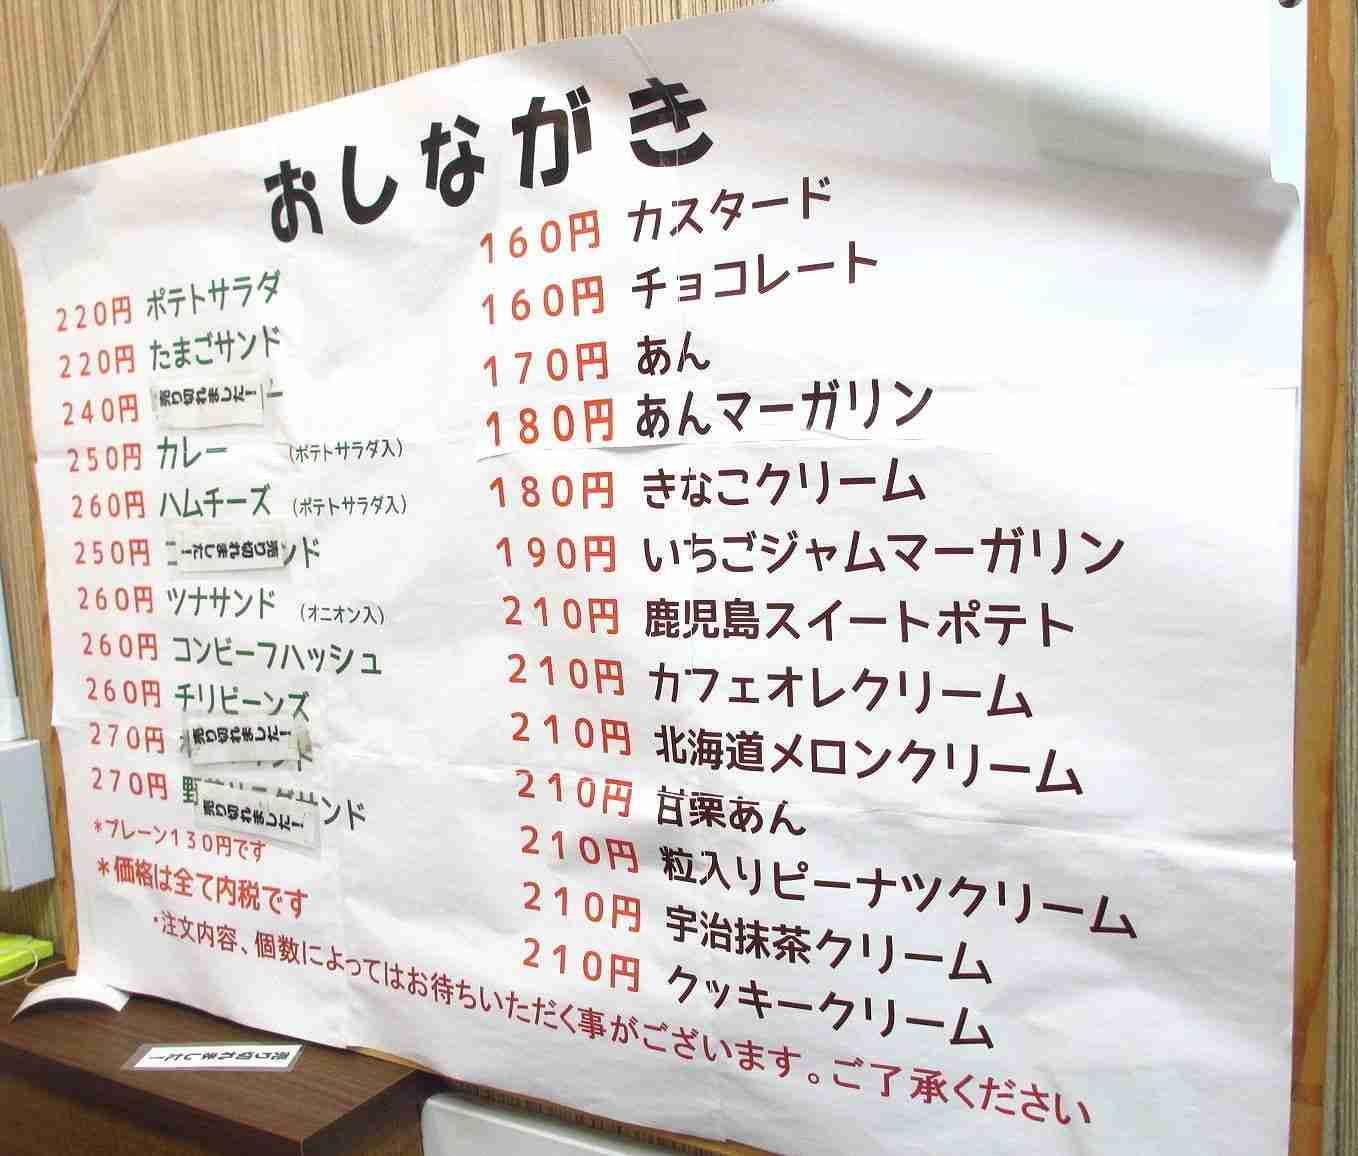 おしながき
220円 ポテトサラダ
220円 たまごサンド
240円 売り切れました!
250円 カレー (ポテトサラダ入)
260円 ハムチーズ (ポテトサラダ入)
250円 売り切れました! ンド
260円 ツナサンド (オニオン入)
260円 コンビーフハッシュ
260円 チリビーンズ
270円 売り切れました!
270円 野 売り切れました! サンド
*プレーン130円です
*価格は全て内税です
160円 カスタード
160円 チョコレート
170円 あん
180円 あんマーガリン
180円 きなこクリーム
190円 いちごジャムマーガリン
210円 鹿児島スイートポテト
210円 カフェオレクリーム
210円 北海道メロンクリーム
210円 甘栗あん
210円 粒入りピーナツクリーム
210円 宇治抹茶クリーム
210円 クッキークリーム
・注文内容、個数によってはお待ちいただく事がございます。ご了承ください
売り切れました!